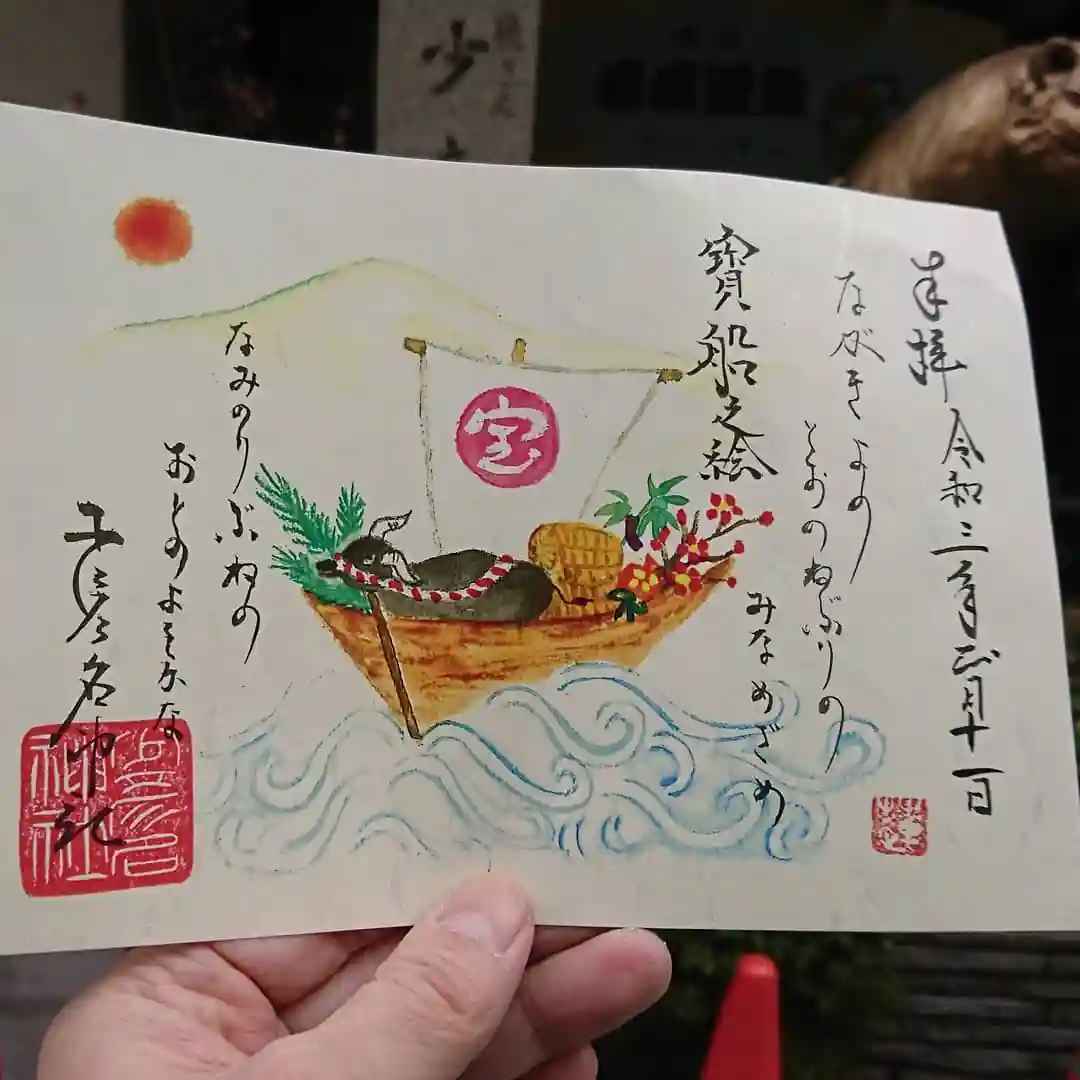 奉拝 令和三年正月十一日
ながきよの
とおのねぶりの
みなめざめ
寶船之絵
宝
なみのりぶねの
おとのよきかな
少彦名神社
少彦名神社
少